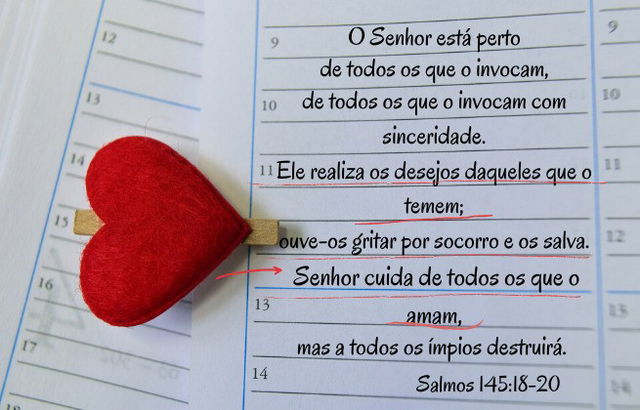 12
13
14
15
16
17
9 O Senhor está perto
de todos os que o invocam,
10 de todos os que o invocam com
sinceridade.
11 Ele realiza os desejos daqueles que o
temem;
ouve-os gritar por socorro e os salva.
Senhor cuida de todos os que o
13
amam,
mas a todos os ímpios destruirá.
14
Salmos 145:18-20
9
10
11
12
13
14